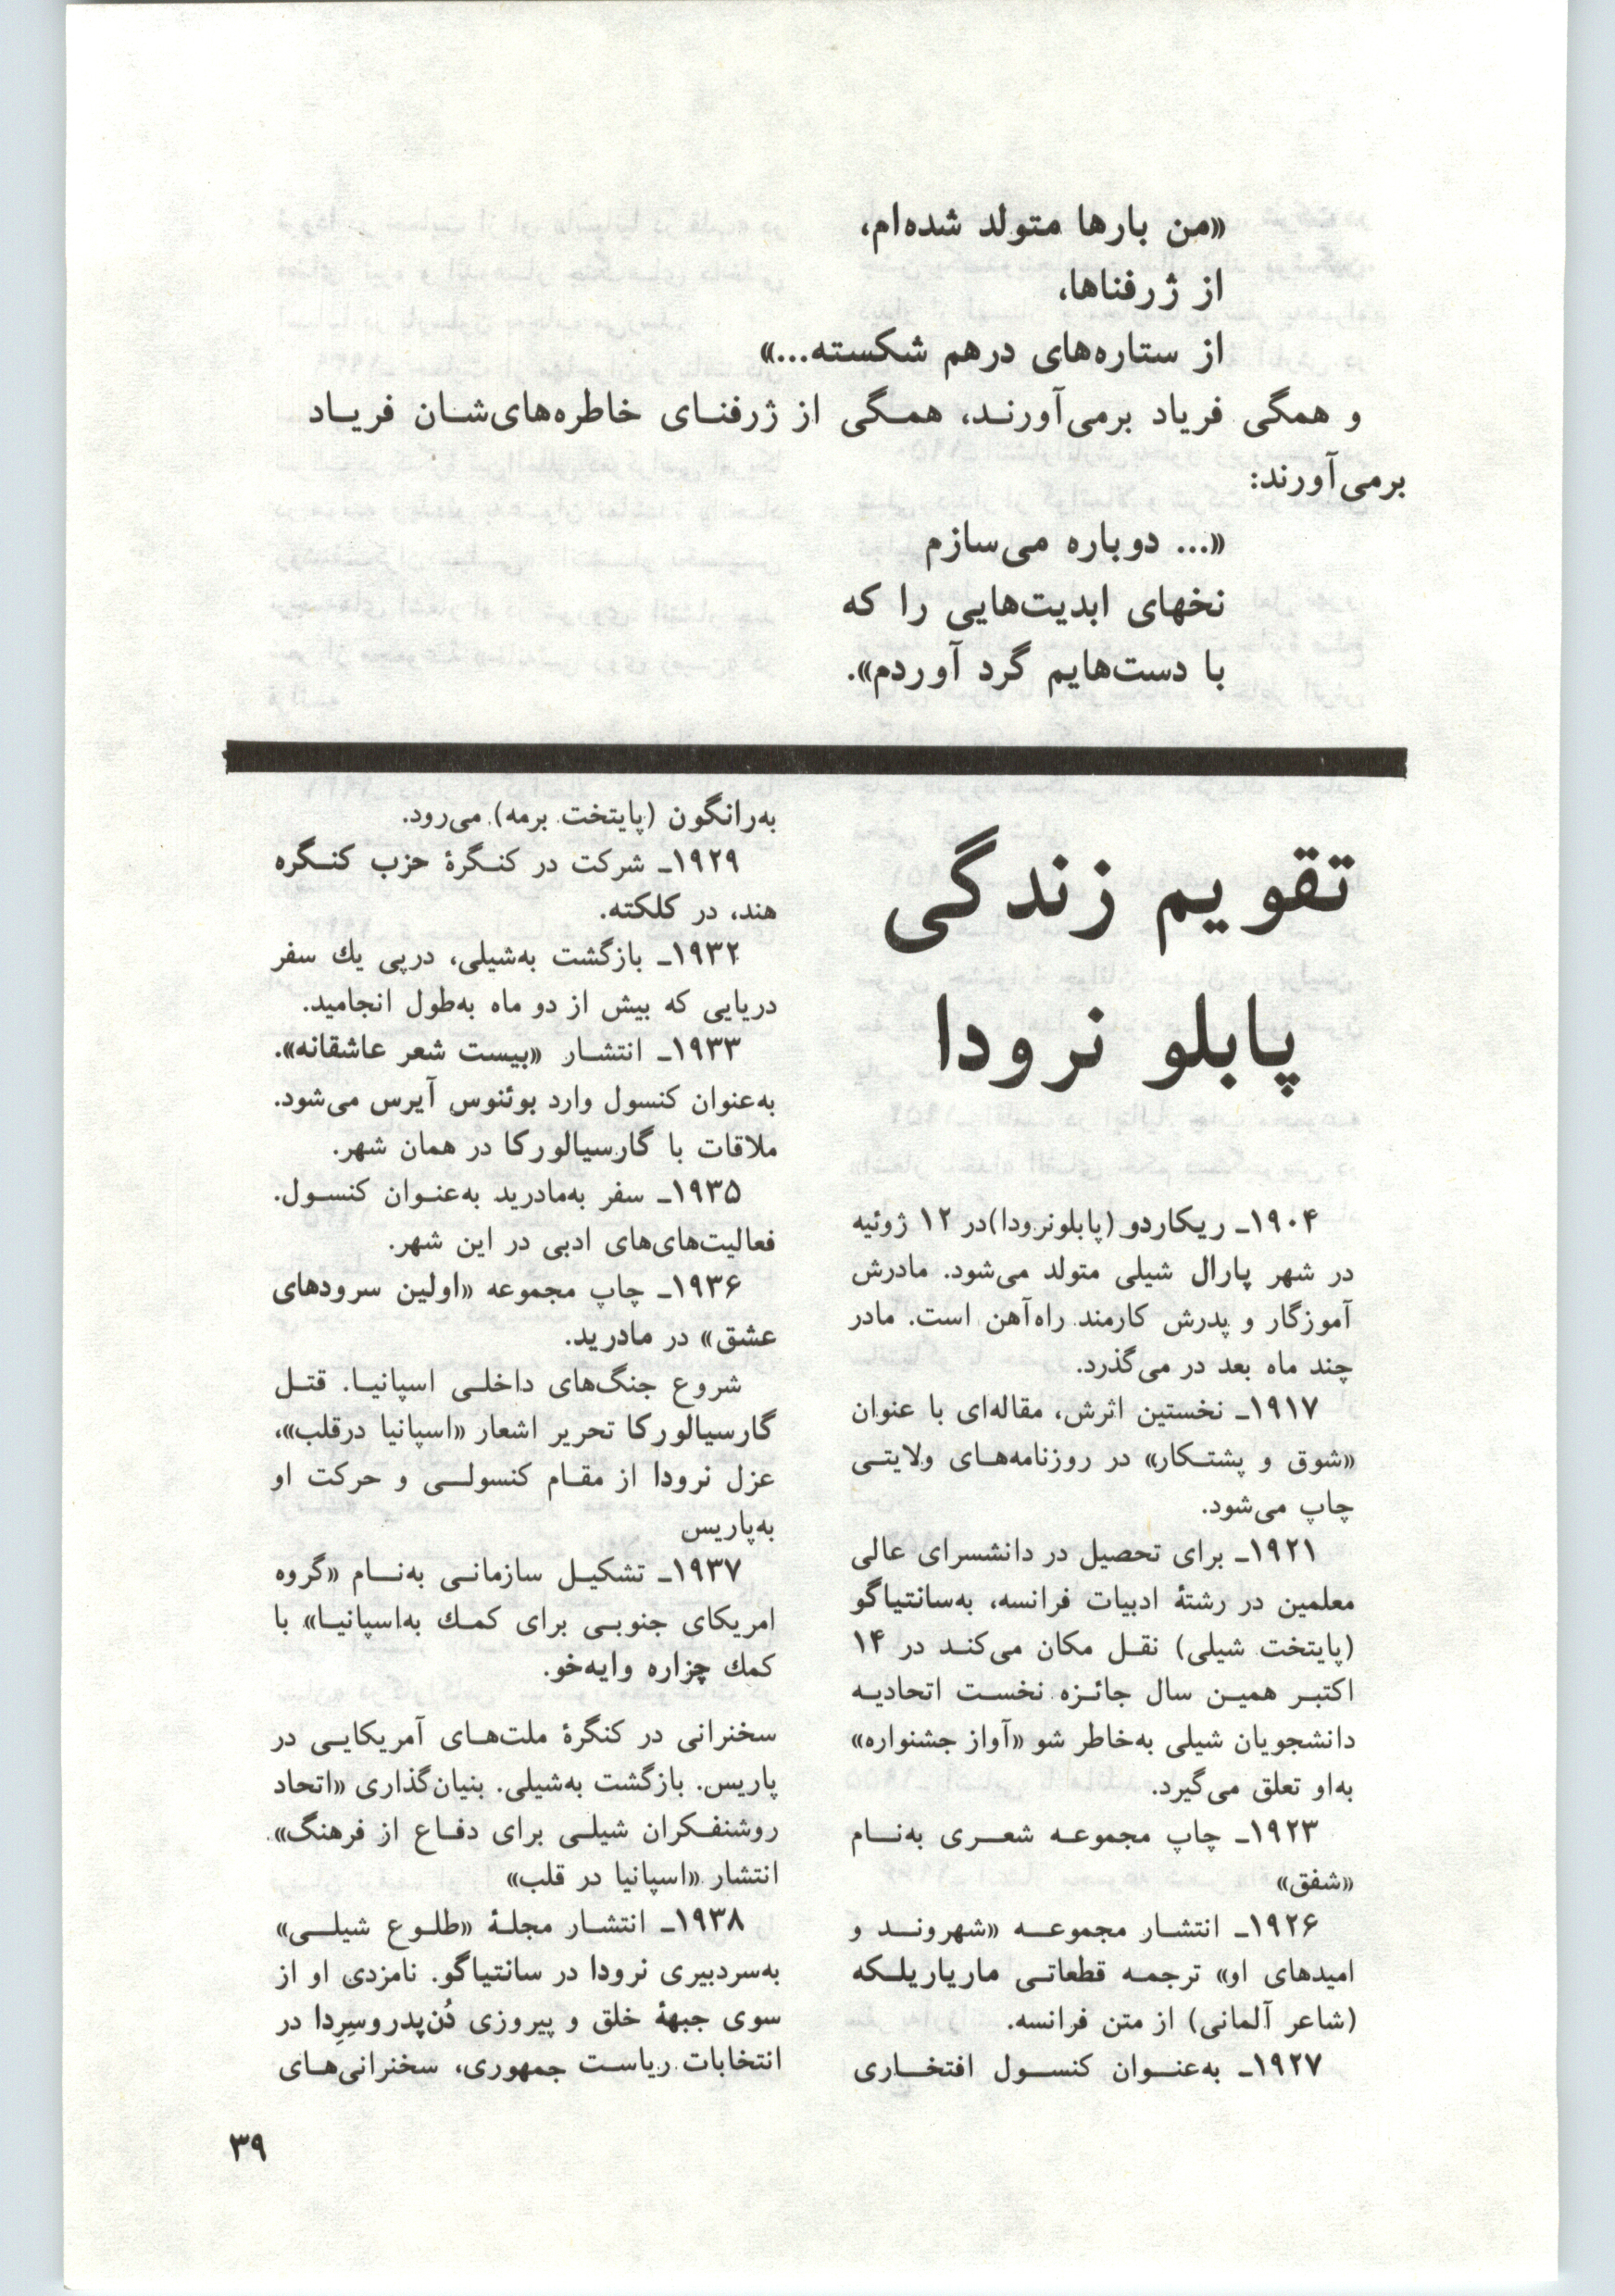 «من بارها متولد شده‌ام،
از ژرفناها،
از ستاره‌های درهم شکسته...»
و همگی فریاد برمی‌آورند، همگی از ژرفنای خاطره‌های‌شان فریاد
برمی‌آورند:
«... دوباره می‌سازم
نخهای ابدیت‌هایی را که
با دست‌هایم گرد آوردم».
تقویم زندگی
پابلو نرودا
۱۹۰۴ـ ریکاردو (پابلونرودا)در ۱۲ ژوئیه
در شهر پارال شیلی متولد می‌شود. مادرش
آموزگار و پدرش کارمند راه‌آهن است. مادر
چند ماه بعد در می‌گذرد.
۱۹۱۷ـ نخستین اثرش، مقاله‌ای با عنوان
«شوق و پشتکار» در روزنامه‌های ولایتی
چاپ می‌شود.
۱۹۲۱ـ برای تحصیل در دانشسرای عالی
معلمین در رشتهٔ ادبیات فرانسه، به‌سانتیاگو
(پایتخت شیلی) نقل مکان می‌کند در ۱۴
اکتبر همین سال جائزه نخست اتحادیه
دانشجویان شیلی به‌خاطر شو «آواز جشنواره»
به‌او تعلق می‌گیرد.
۱۹۲۳ـ چاپ مجموعه شعری به‌نام
«شفق»
۱۹۲۶ـ انتشار مجموعه «شهروند و
امیدهای او» ترجمه قطعاتی ماریاریلکه
(شاعر آلمانی) از متن فرانسه.
۱۹۲۷ـ به‌عنوان کنسول افتخاری
به‌رانگون (پایتخت برمه) می‌رود.
۱۹۲۹ـ شرکت در کنگرهٔ حزب کنگره
هند، در کلکته.
۱۹۳۲ـ بازگشت به‌شیلی، درپی یك سفر
دریایی که بیش از دو ماه به‌طول انجامید.
۱۹۳۳ـ انتشار «بیست شعر عاشقانه».
به‌عنوان کنسول وارد بوئنوس آیرس می‌شود.
ملاقات با گارسیالورکا در همان شهر.
۱۹۳۵ـ سفر به‌مادرید به‌عنوان کنسول.
فعالیت‌های‌های ادبی در این شهر.
۱۹۳۶ـ چاپ مجموعه «اولین سرودهای
عشق» در مادرید.
شروع جنگ‌های داخلی اسپانیا. قتل
گارسیالورکا تحریر اشعار «اسپانیا درقلب»،
عزل نرودا از مقام کنسولی و حرکت او
به‌پاریس
۱۹۳۷ـ تشکیل سازمانی به‌نام «گروه
امریکای جنوبی برای کمك به‌اسپانیا» با
کمك چزاره وایه‌خو.
سخنرانی در کنگرهٔ ملت‌های آمریکایی در
پاریس. بازگشت به‌شیلی. بنیان‌گذاری «اتحاد
روشنفکران شیلی برای دفاع از فرهنگ».
انتشار «اسپانیا در قلب»
۱۹۳۸ـ انتشار مجلهٔ «طلوع شیلی»
به‌سردبیری نرودا در سانتیاگو. نامزدی او از
سوی جبههٔ خلق و پیروزی دُن‌پدروسِرِدا در
انتخابات ریاست جمهوری، سخنرانی‌های
۳۹